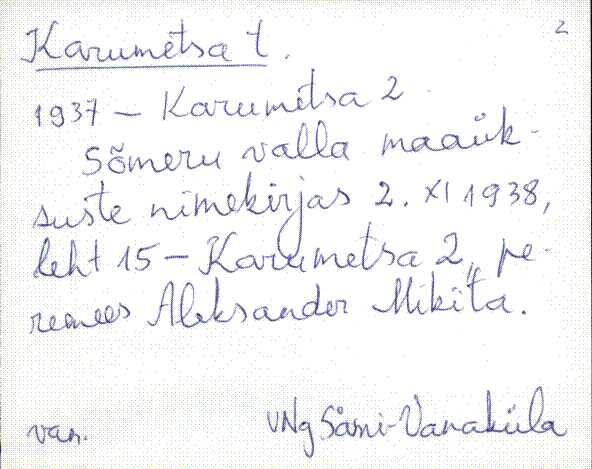 2
Karumetsa t.
1937 – Karumetsa 2.
Sõmeru valla maaük-
suste nimekirjas 2. XI 1938,
leht 15 – Karumetsa 2, pe-
remees Aleksander Mikita.
van. VNg Sämi-Vanaküla